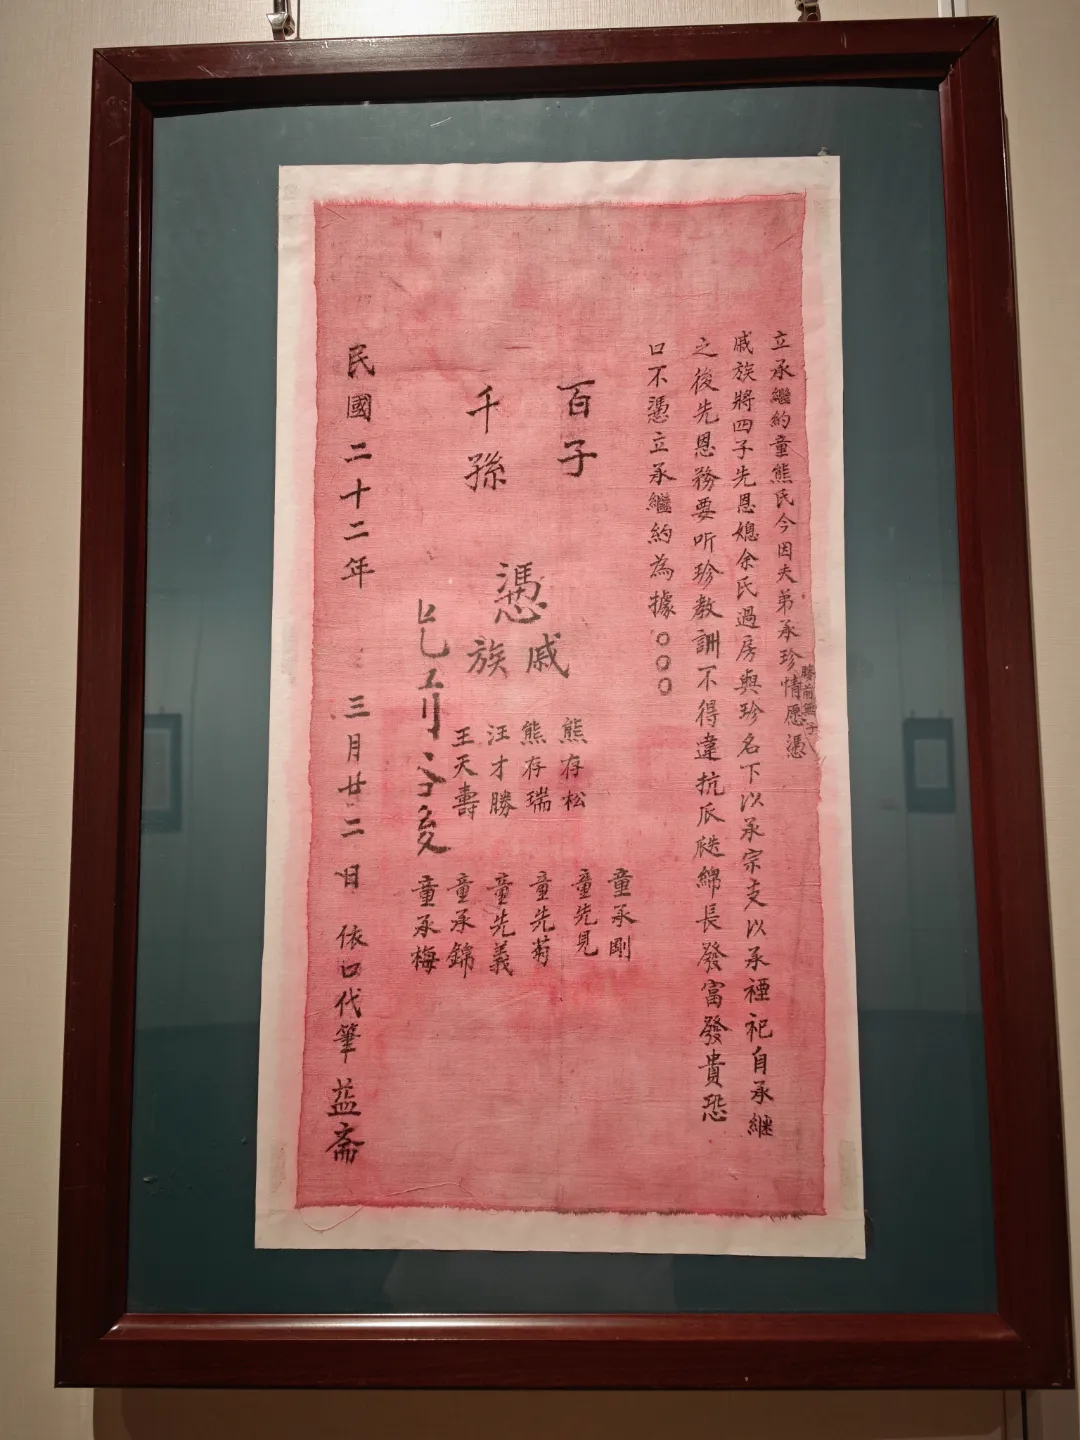 立承繼約童熊氏今因夫弟承珍情愿憑
膝前無子
戚族將四子先恩媳余氏過房與珍名下以承宗支以承禋祀自承継
之後先恩務要听珍教訓不得違抗瓜瓞綿長發富發貴恐
口不憑立承繼約為據○○○
百子
千孫
憑
戚
族
熊存松
熊存瑞
汪才勝
王天壽
童承剛
童先見
童先菊
童先義
童承錦
童承梅
民國二十二年 三月廿二日 依口代筆 益斋